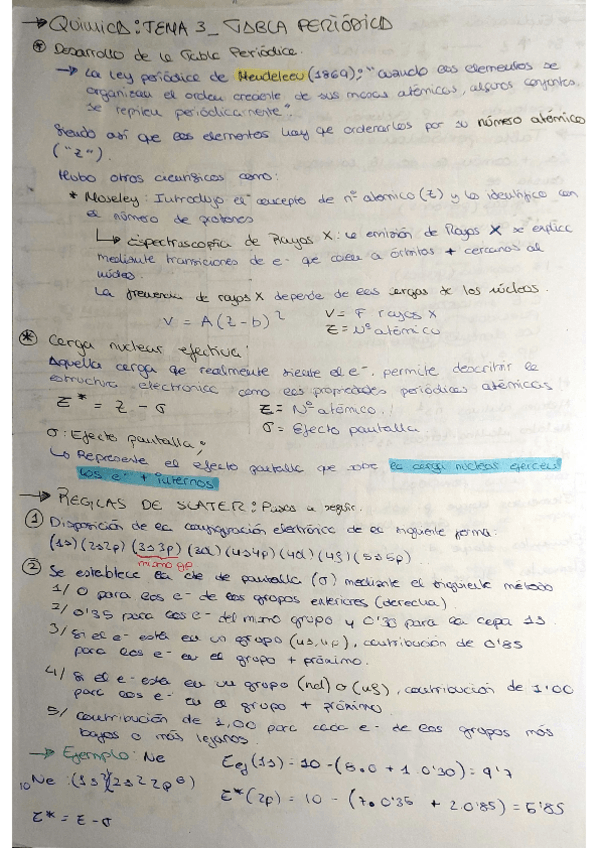 → QUIMICA: TEMA 3_ TABLA PERIÓDICA
* Desarrollo de la Tabla Periódica.
→ La ley periódica de Mendeleev (1869): "cuando los elementos se
organizan el orden creciente de sus masas atómicas, algunos conjuntos
se repiten periódicamente".
Siendo así que los elementos hay que ordenarlos por su número atómico
("Z").
Hubo otros científicos como:
* Moseley: Introdujo el concepto de nº atómico (Z) y lo identificó con
el número de protones
↳ Espectroscopia de Rayos X: la emisión de Rayos X se explica
mediante transiciones de e- que caen a órbitas + cercanas al
núcleo.
La frecuencia de rayos X depende de las cargas de los núcleos.
V = A(Z-b)²
V = F rayos X
Z = Nº atómico
* Carga nuclear efectiva:
Aquella carga que realmente siente el e-. permite describir la
estructura electrónica como las propiedades periódicas atómicas
Z* = Z - σ
Z = Nº atómico.
σ = Efecto pantalla.
σ: Efecto pantalla;
↳ Representa el efecto pantalla que sobre la carga nuclear ejercen
los e- + internos
→ REGLAS DE SLATER: Pasos a seguir.
① Disposición de la configuración electrónica de la siguiente forma:
(1s)(2s2p)(3s3p)(3d)(4s4p)(4d)(4f)(5s5p)
mismo gp
② Se establece la cte de pantalla (σ) mediante el siguiente método
1/ 0 para los e- de los grupos exteriores (derecha).
2/ 0'35 para los e- del mismo grupo y 0'30 para la capa 1s.
3/ Si el e- está en un grupo (ns,np), contribución de 0'85
para los e- en el grupo + próximo.
4/ Si el e- está en un grupo (nd) o (nf), contribución de 1'00
para los e- en el grupo + próximo
5/ contribución de 1,00 para cada e- de los grupos más
bajos o más lejanos.
→ Ejemplo: Ne
Zef(1s) = 10 - (8·0 + 1·0'30) = 9'7
₁₀Ne: (1s²)(2s²2p⁶)
Z*(2p) = 10 - (7·0'35 + 2·0'85) = 5'85
Z* = Z - σ